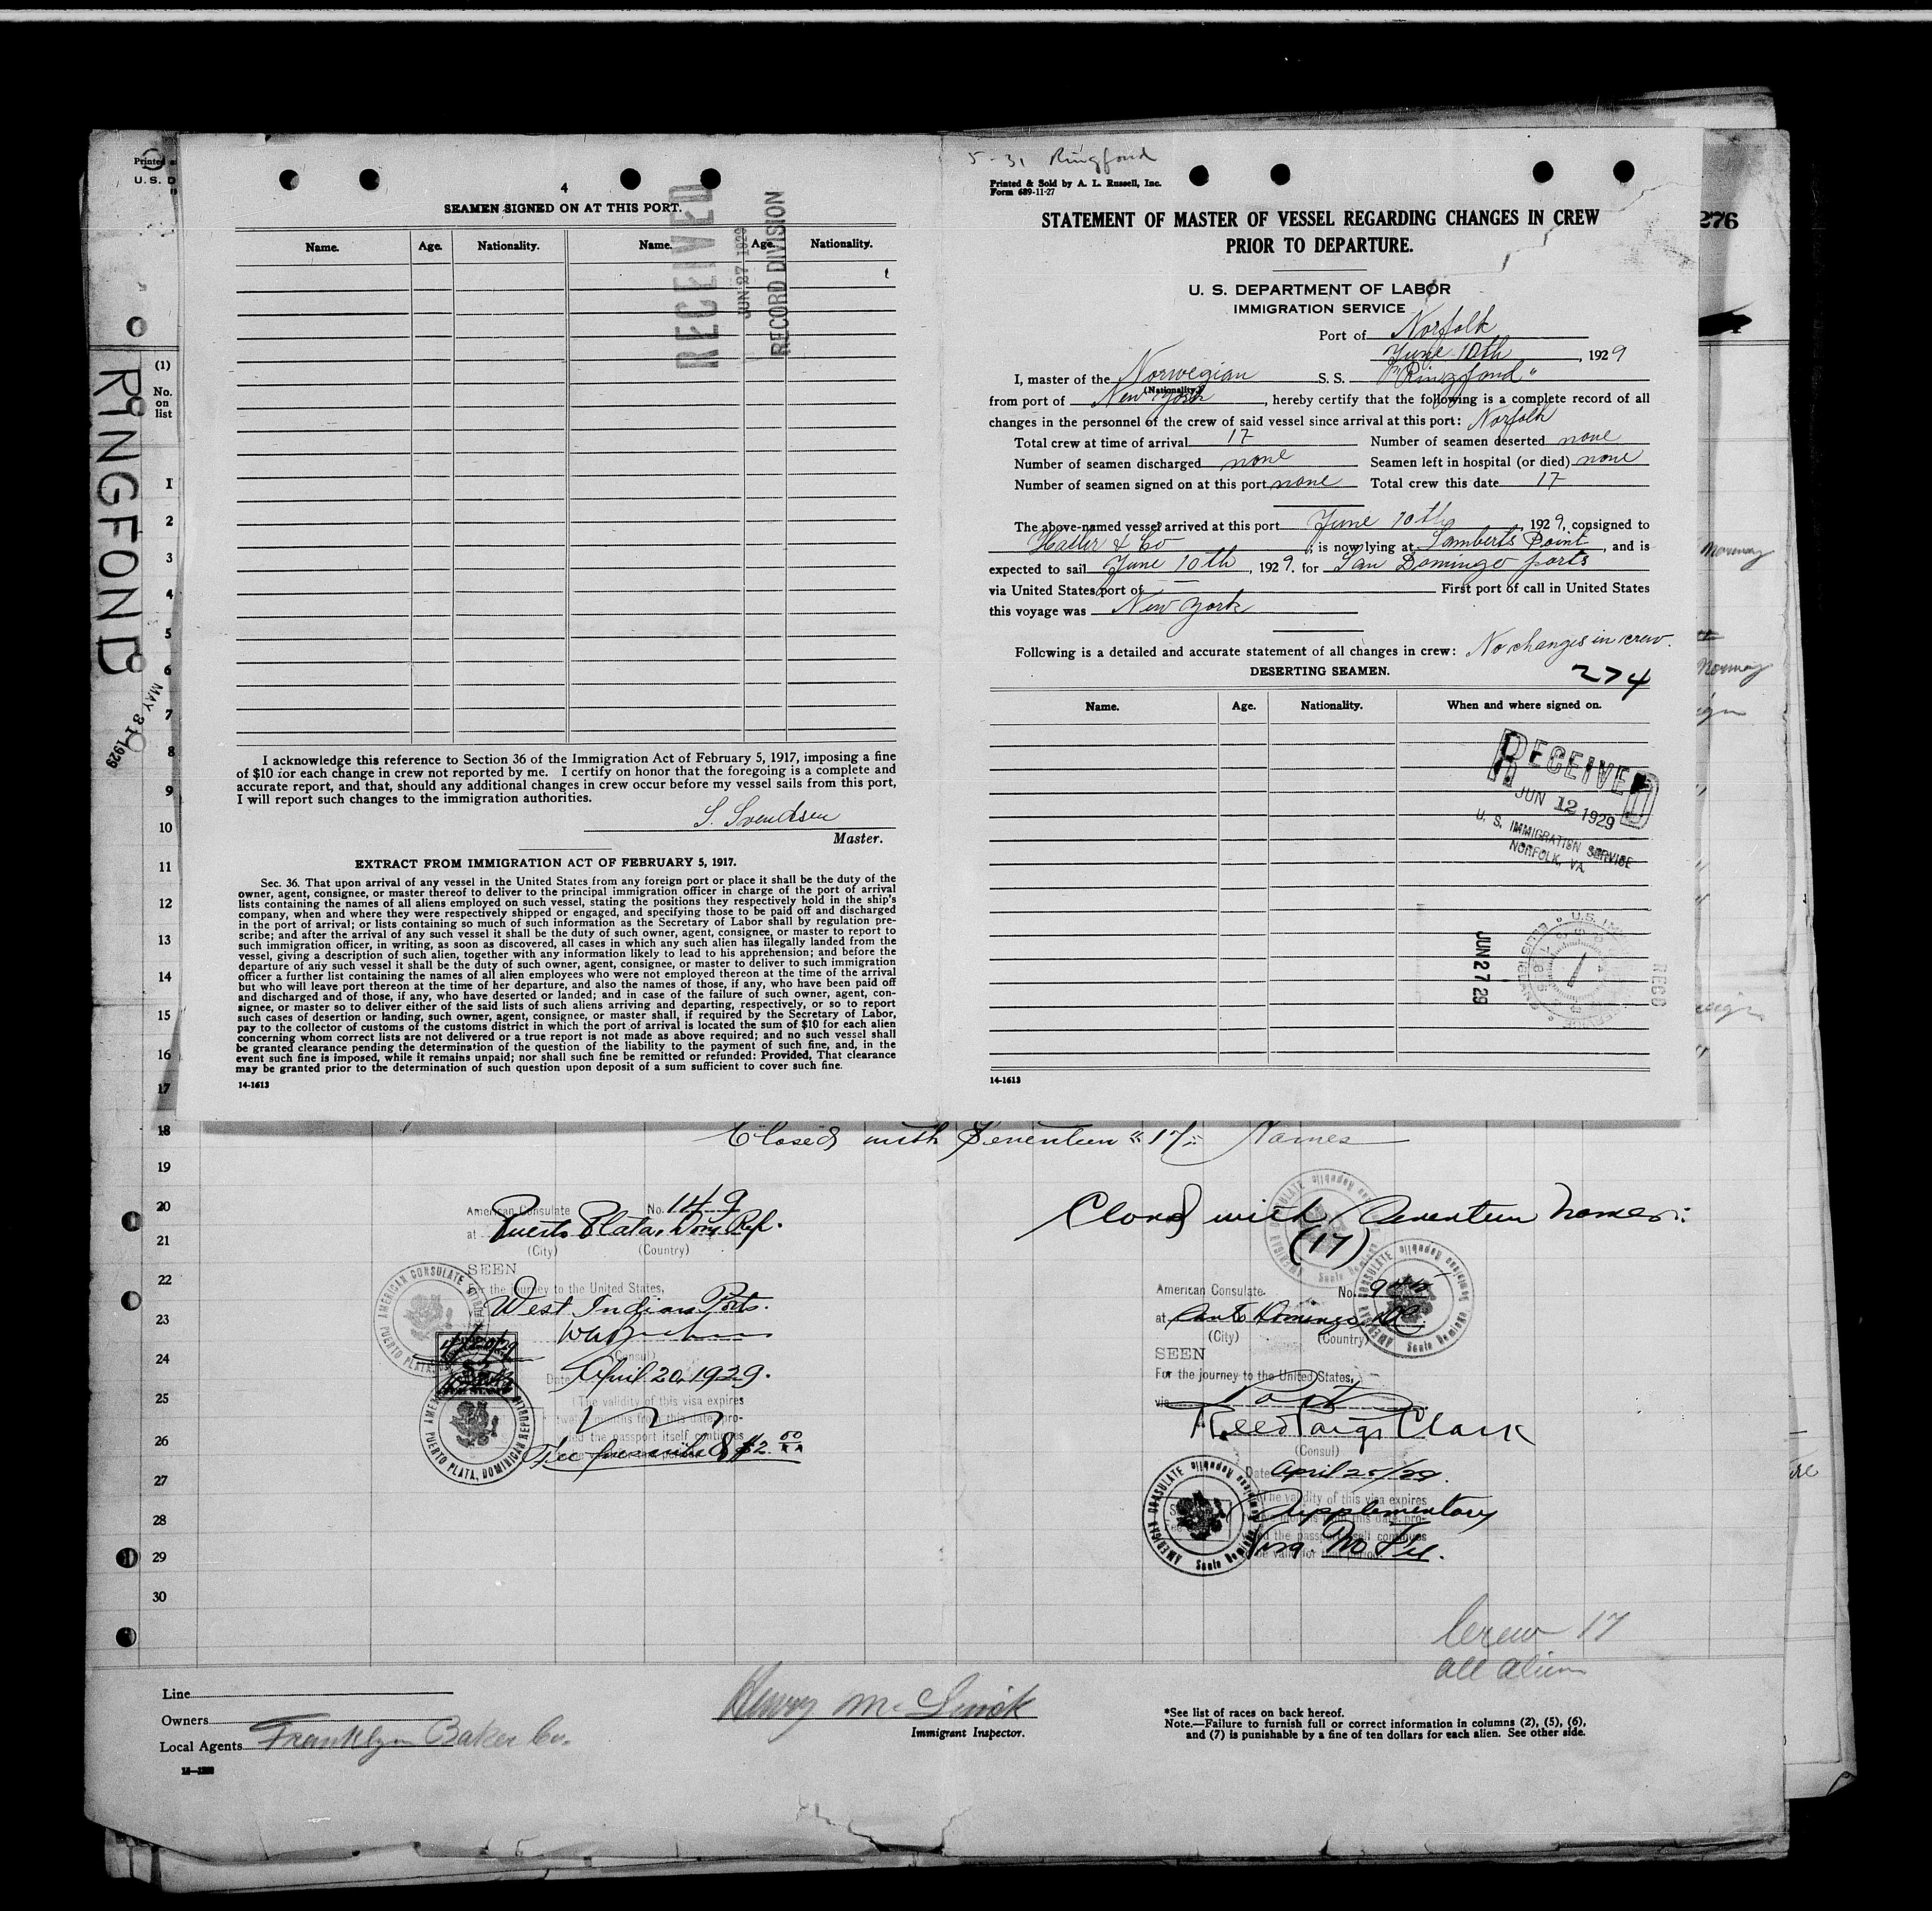 5-31 Ringfond
4
SEAMEN SIGNED ON AT THIS PORT.
Name. Age. Nationality. Name. Age. Nationality.
RECEIVED
JUN 27 1929
RECORD DIVISION
I acknowledge this reference to Section 36 of the Immigration Act of February 5, 1917, imposing a fine
of $10 for each change in crew not reported by me. I certify on honor that the foregoing is a complete and
accurate report, and that, should any additional changes in crew occur before my vessel sails from this port,
I will report such changes to the immigration authorities.
S. Svendsen
Master.
EXTRACT FROM IMMIGRATION ACT OF FEBRUARY 5, 1917.
Sec. 36. That upon arrival of any vessel in the United States from any foreign port or place it shall be the duty of the
owner, agent, consignee, or master thereof to deliver to the principal immigration officer in charge of the port of arrival
lists containing the names of all aliens employed on such vessel, stating the positions they respectively hold in the ship's
company, when and where they were respectively shipped or engaged, and specifying those to be paid off and discharged
in the port of arrival; or lists containing so much of such information as the Secretary of Labor shall by regulation pre-
scribe; and after the arrival of any such vessel it shall be the duty of such owner, agent, consignee, or master to report to
such immigration officer, in writing, as soon as discovered, all cases in which any such alien has illegally landed from the
vessel, giving a description of such alien, together with any information likely to lead to his apprehension; and before the
departure of any such vessel it shall be the duty of such owner, agent, consignee, or master to deliver to such immigration
officer a further list containing the names of all alien employees who were not employed thereon at the time of the arrival
but who will leave port thereon at the time of her departure, and also the names of those, if any, who have been paid off
and discharged and of those, if any, who have deserted or landed; and in case of the failure of such owner, agent, con-
signee, or master so to deliver either of the said lists of such aliens arriving and departing, respectively, or so to report
such cases of desertion or landing, such owner, agent, consignee, or master shall, if required by the Secretary of Labor,
pay to the collector of customs of the customs district in which the port of arrival is located the sum of $10 for each alien
concerning whom correct lists are not delivered or a true report is not made as above required; and no such vessel shall
be granted clearance pending the determination of the question of the liability to the payment of such fine, and, in the
event such fine is imposed, while it remains unpaid; nor shall such fine be remitted or refunded: Provided, That clearance
may be granted prior to the determination of such question upon deposit of a sum sufficient to cover such fine.
14-1613
Printed & Sold by A. L. Russell, Inc.
Form 689-11-27
STATEMENT OF MASTER OF VESSEL REGARDING CHANGES IN CREW
PRIOR TO DEPARTURE.
U. S. DEPARTMENT OF LABOR
IMMIGRATION SERVICE
Port of Norfolk
June 10th, 1929
I, master of the Norwegian S. S. "Ringfond"
(Nationality.)
from port of New York, hereby certify that the following is a complete record of all
changes in the personnel of the crew of said vessel since arrival at this port: Norfolk
Total crew at time of arrival 17 Number of seamen deserted none
Number of seamen discharged none Seamen left in hospital (or died) none
Number of seamen signed on at this port none Total crew this date 17
The above-named vessel arrived at this port June 10th, 1929, consigned to
Hasler & Co; is now lying at Lamberts Point, and is
expected to sail June 10th, 1929. for San Domingo ports
via United States port of First port of call in United States
this voyage was New York
Following is a detailed and accurate statement of all changes in crew: No changes in crew.
DESERTING SEAMEN. 274
Name. Age. Nationality. When and where signed on.
RECEIVED
JUN 12 1929
U. S. IMMIGRATION SERVICE
NORFOLK, VA
JUN 27 29
REC'D
14-1613
276
Printed
U. S. D
RINGFOND
MAY 31 1929
(1)
No.
on
list
1
2
3
4
5
6
7
8
9
10
11
12
13
14
15
16
17
18
19
20
21
22
23
24
25
26
27
28
29
30
Norway
Norway
Closed with Seventeen "17" Names
American Consulate No. 149
at Puerto Plata, Dom. Rep.
(City) (Country)
SEEN
For the journey to the United States,
via West Indian Ports.
(Consul)
Date April 20, 1929.
(The validity of this visa expires
twelve months from this date, pro-
vided the passport itself continues
Fee prescribed $2.00
AMERICAN CONSULATE
PUERTO PLATA, DOMINICAN REPUBLIC
Closed with Seventeen names:
(17)
American Consulate No.
at Santo Domingo, D.R.
(City) (Country)
SEEN
For the journey to the United States,
via Ports
Reed Paige Clark
(Consul)
Date April 25/29.
(The validity of this visa expires
twelve months from this date, pro-
vided the passport itself continues
to be valid for that period.
Supplementary
Visa. No Fee.
AMERICAN CONSULATE Santo Domingo Dominican Republic
Crew 17
all aliens
Line
Owners
Local Agents Franklyn Baker Co.
Immigrant Inspector.
*See list of races on back hereof.
Note.—Failure to furnish full or correct information in columns (2), (5), (6),
and (7) is punishable by a fine of ten dollars for each alien. See other side.